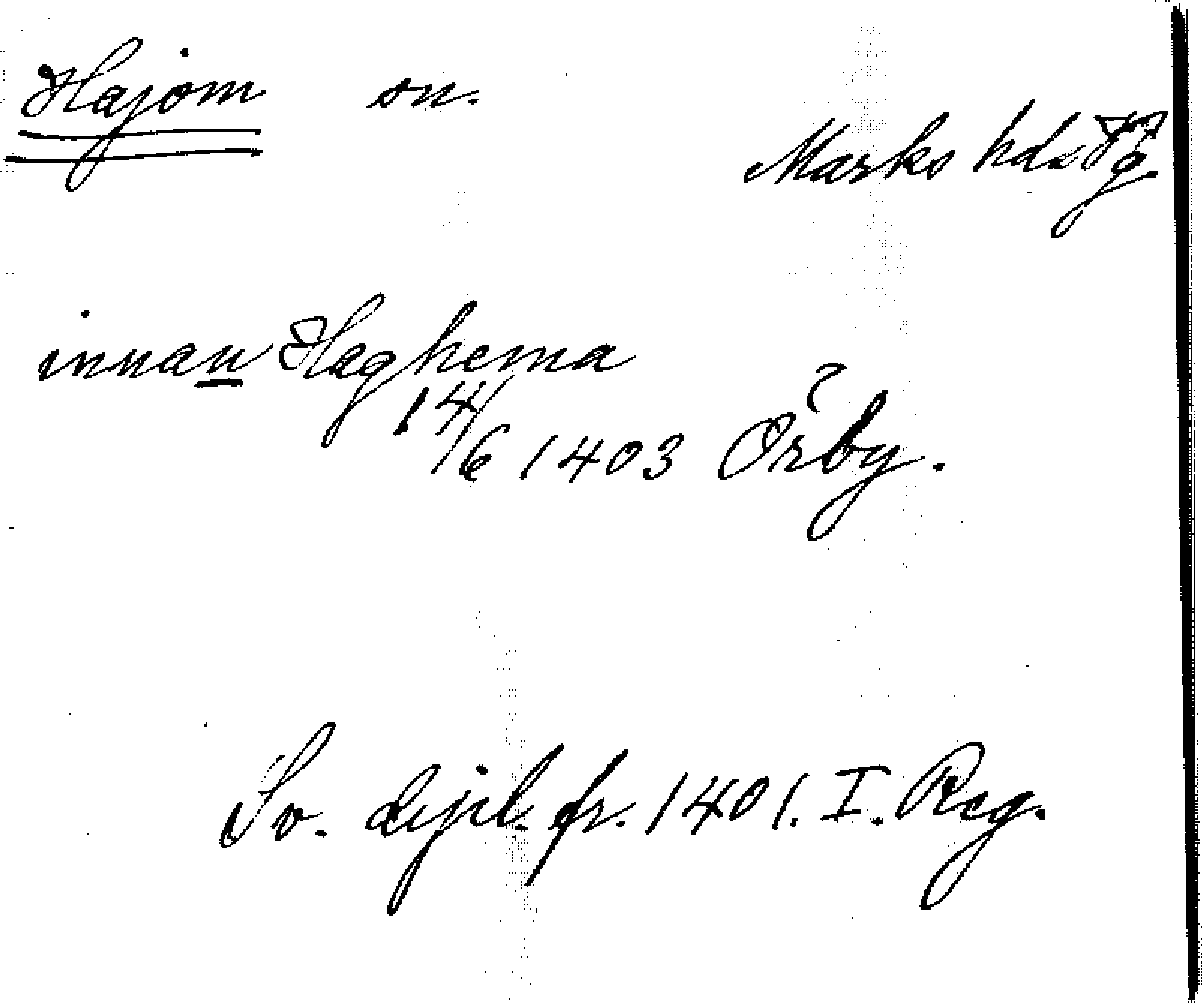 Hajom sn.
Marks hds Vg
innan Haghema
14/6 1403 Örby.
Sv. dipl. fr. 1401. I. Reg.